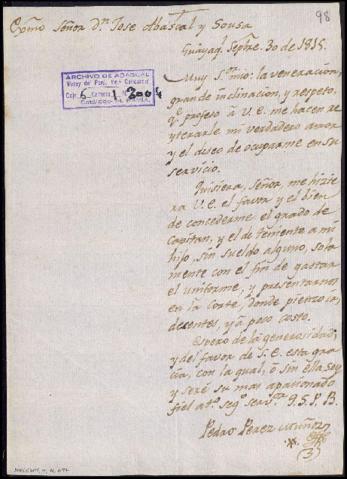 98
Exmo Señor Dn Jose Abascal y Sousa
Guayaql Septre 30 de 1815.
ARCHIVO DE ABASCAL
Muy Sr mio: la veneracion,
grande inclinacion, y respeto,
qe profeso à V.E. me hacen re
yterarle mi verdadero amor
y el deseo de ocuparme en su
servicio.
Quisiera, Señor, me hizie
ra V.E. el favor y el bien
de concederme el grado de
Capitan, y el de teniente a mi
hijo, sin sueldo alguno, sola
mente con el fin de gastar
el uniforme, y presentarnos
en la Corte, donde pienzo
decentes, y à poco costo.
Espero de la generosidad,
y del favor de S.E. esta gra
cia, con la qual, ò sin ella soy
y seré su mas apasionado
fiel ato segо servor Q.S.P.B.
Pedro Perez Muñoz
(3)